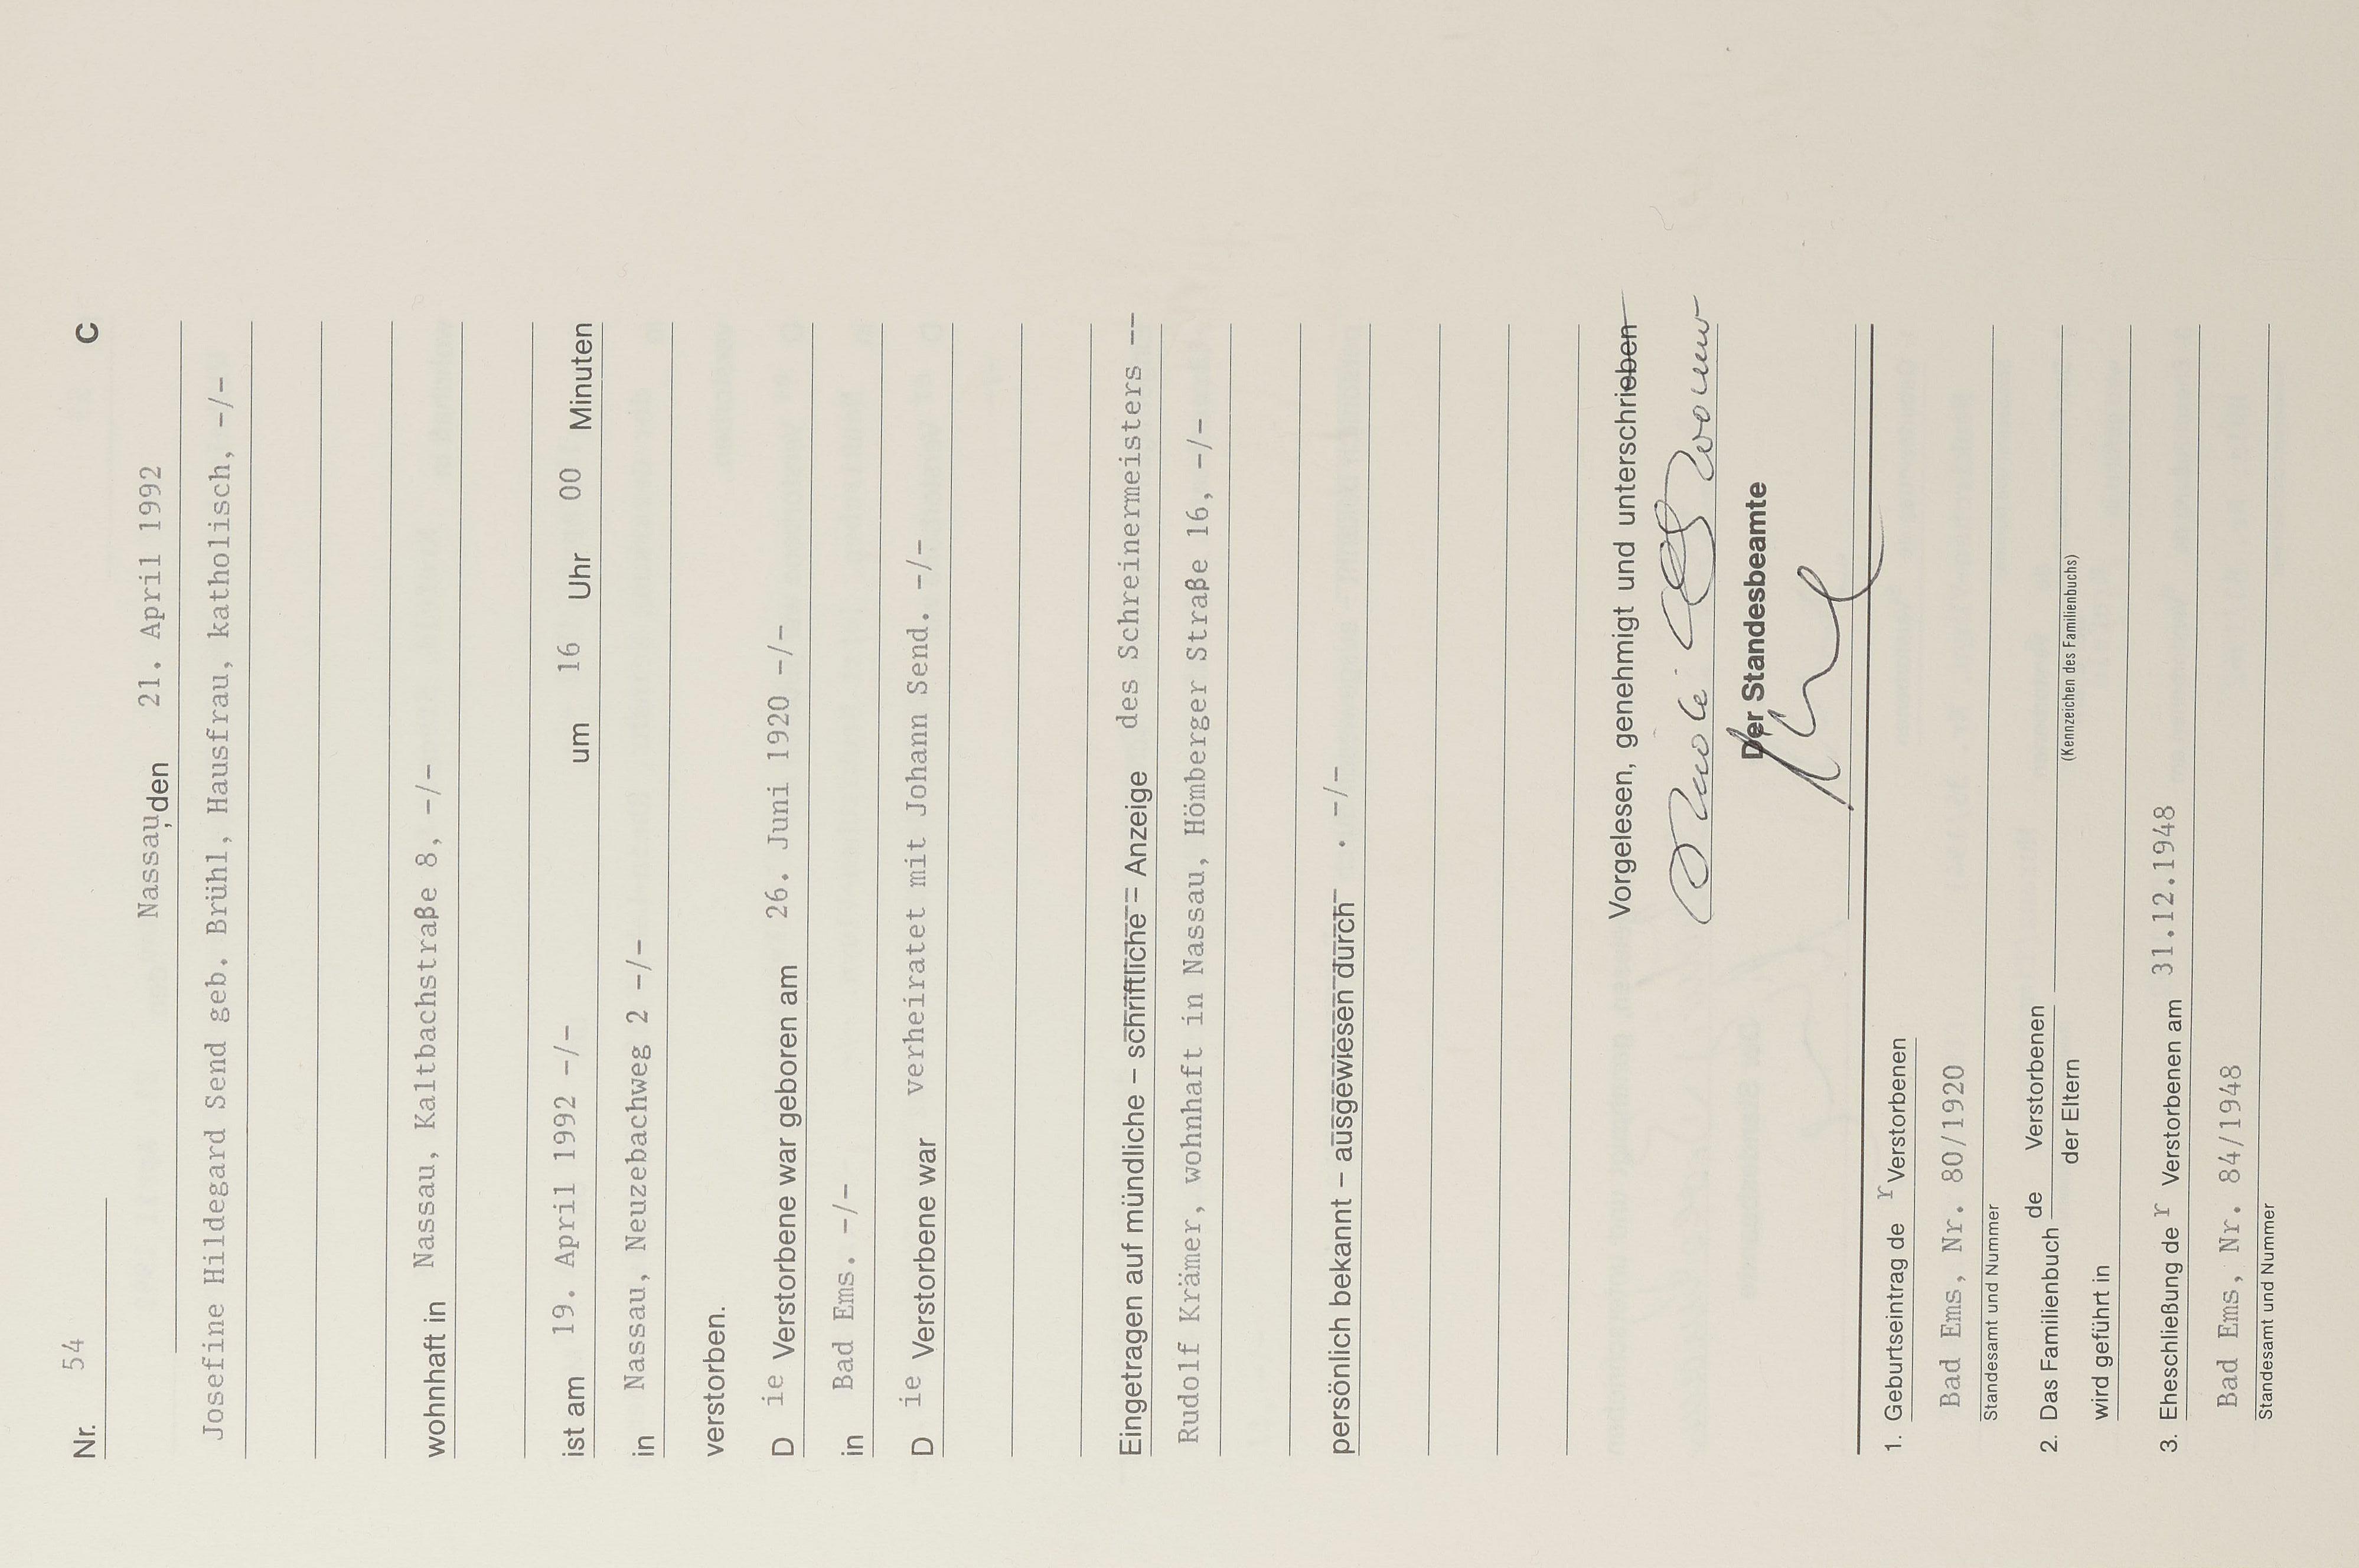 Nr. 54 C
Nassau, den 21. April 1992
Josefine Hildegard Send geb. Brühl, Hausfrau, katholisch, -/-
wohnhaft in Nassau, Kaltbachstraße 8, -/-
ist am 19. April 1992 -/- um 16 Uhr 00 Minuten
in Nassau, Neuzebachweg 2 -/-
verstorben.
D ie Verstorbene war geboren am 26. Juni 1920 -/-
in Bad Ems. -/-
D ie Verstorbene war verheiratet mit Johann Send. -/-
Eingetragen auf mündliche – schriftliche = Anzeige des Schreinermeisters --
Rudolf Krämer, wohnhaft in Nassau, Hömberger Straße 16, -/-
persönlich bekannt – ausgewiesen durch . -/-
Vorgelesen, genehmigt und unterschrieben
Der Standesbeamte
1. Geburtseintrag de r Verstorbenen
Bad Ems, Nr. 80/1920
Standesamt und Nummer
2. Das Familienbuch de Verstorbenen
der Eltern
(Kennzeichen des Familienbuchs)
wird geführt in
3. Eheschließung de r Verstorbenen am 31.12.1948
Bad Ems, Nr. 84/1948
Standesamt und Nummer